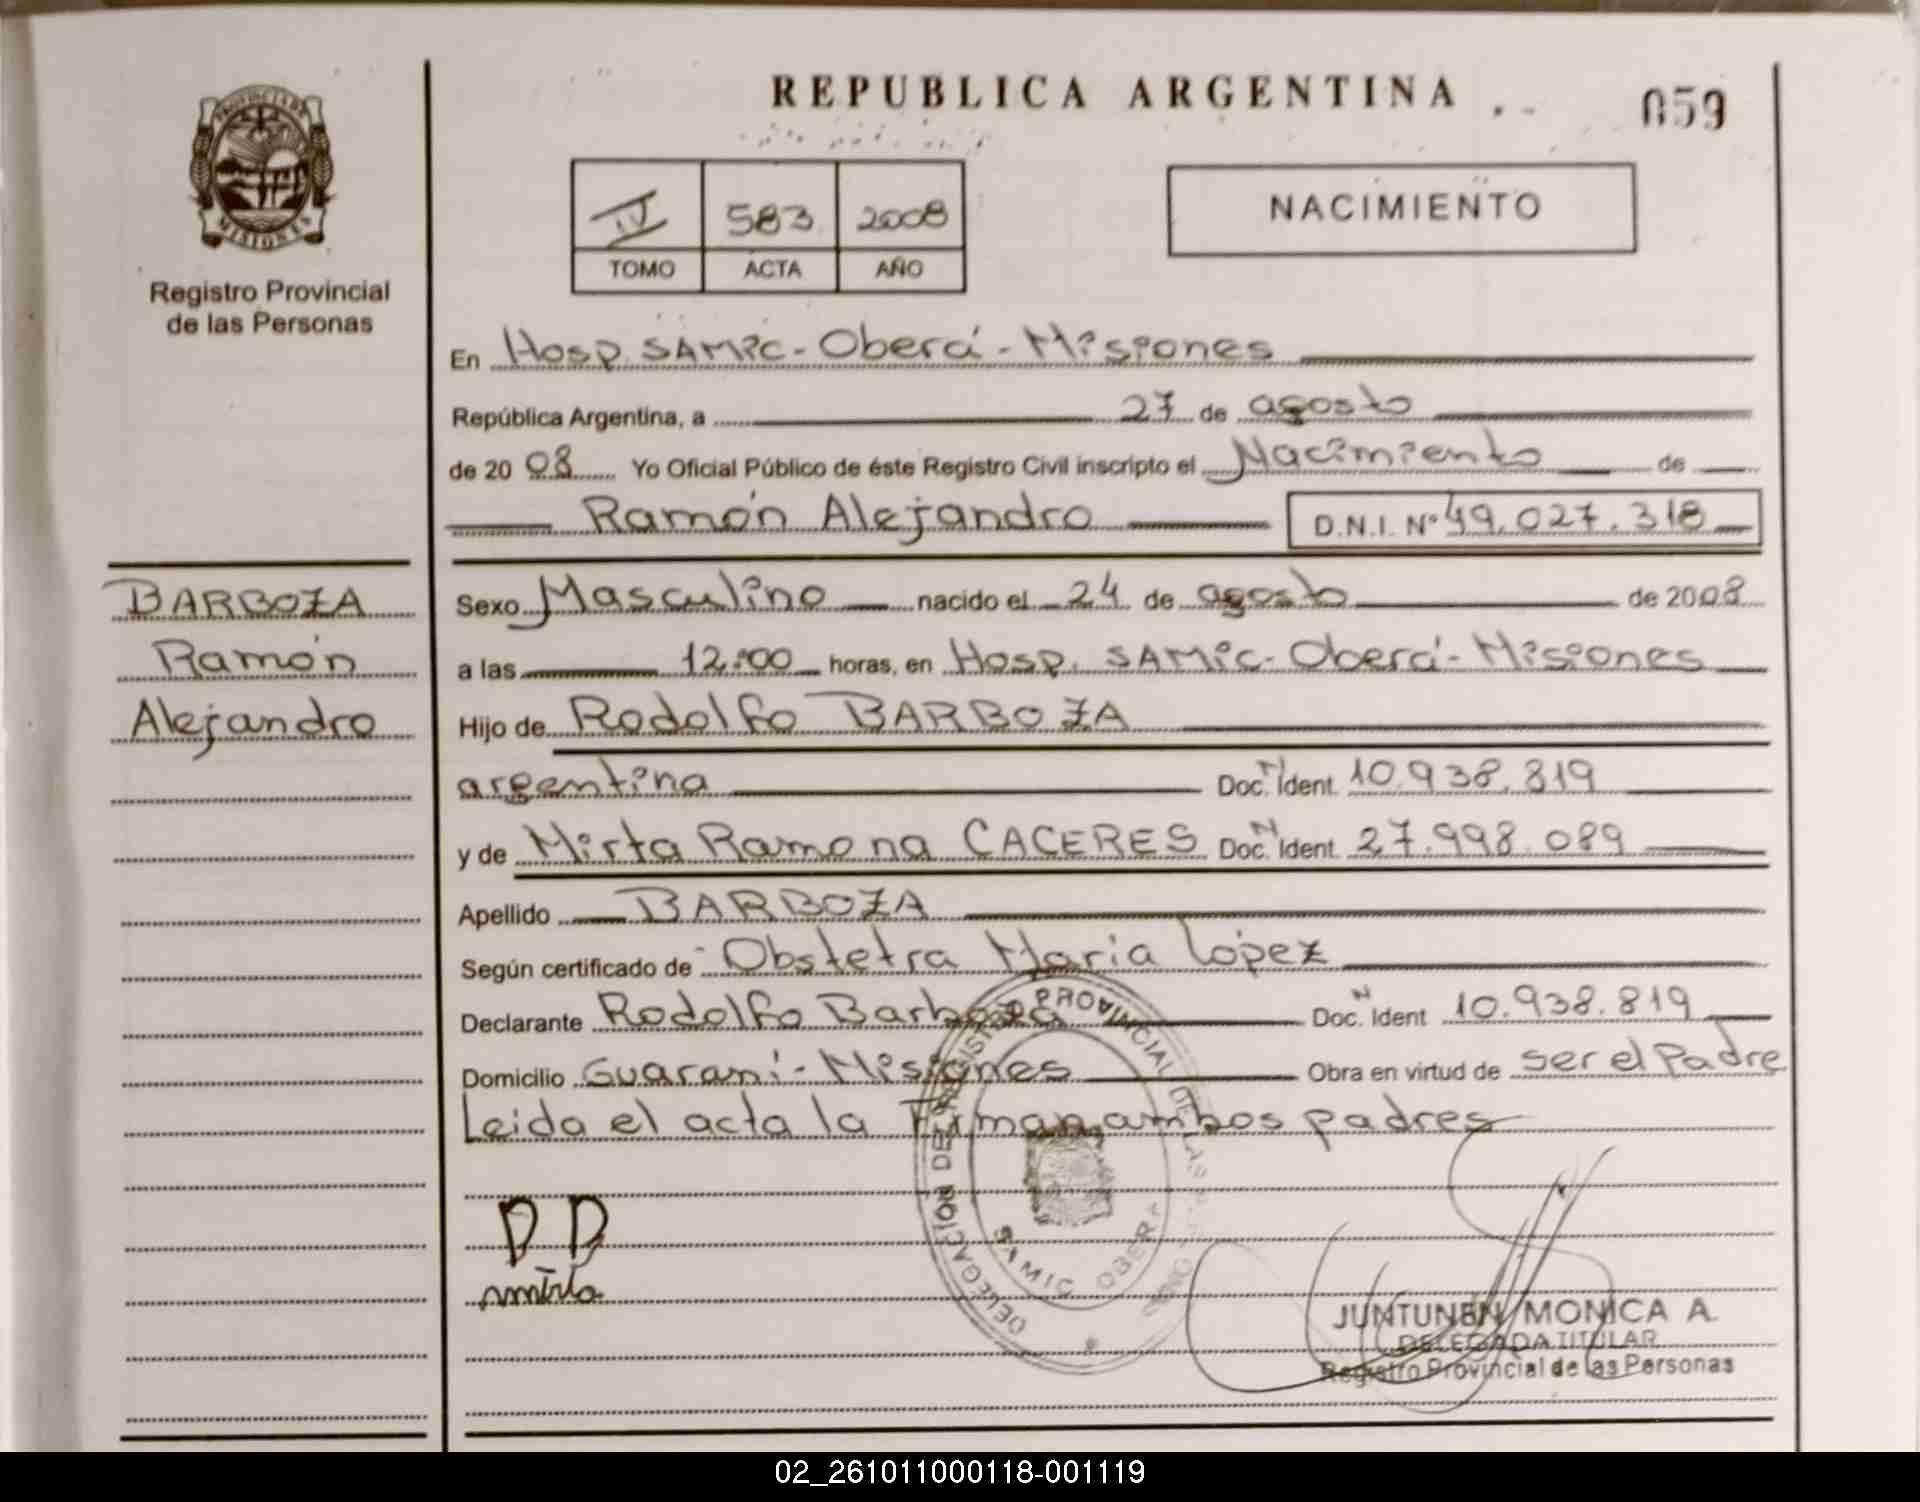 REPUBLICA ARGENTINA
059
PROVINCIA DE
MISIONES
Registro Provincial
de las Personas
IV 583 2008
TOMO ACTA AÑO
NACIMIENTO
En Hosp. SAMIC - Oberá - Misiones
República Argentina, a 27 de agosto
de 2008 Yo Oficial Público de éste Registro Civil inscripto el Nacimiento de
Ramón Alejandro D.N.I. Nº 49.027.318
BARBOZA
Ramón
Alejandro
Sexo Masculino nacido el 24 de agosto de 2008
a las 12:00 horas, en Hosp. SAMIC - Oberá - Misiones
Hijo de Rodolfo BARBOZA
argentina Doc. N Ident. 10.938.819
y de Mirta Ramona CACERES Doc. N Ident. 27.998.089
Apellido BARBOZA
Según certificado de Obstetra Maria Lopez
Declarante Rodolfo Barboza Doc. N Ident 10.938.819
Domicilio Guaraní - Misiones Obra en virtud de ser el Padre
Leida el acta la Firman ambos padres
DELEGACIÓN DEL REGISTRO PROVINCIAL DE LAS
SAMIC OBERA
mirta
JUNTUNEN MONICA A.
DELEGADA TITULAR
Registro Provincial de las Personas
02_261011000118-001119